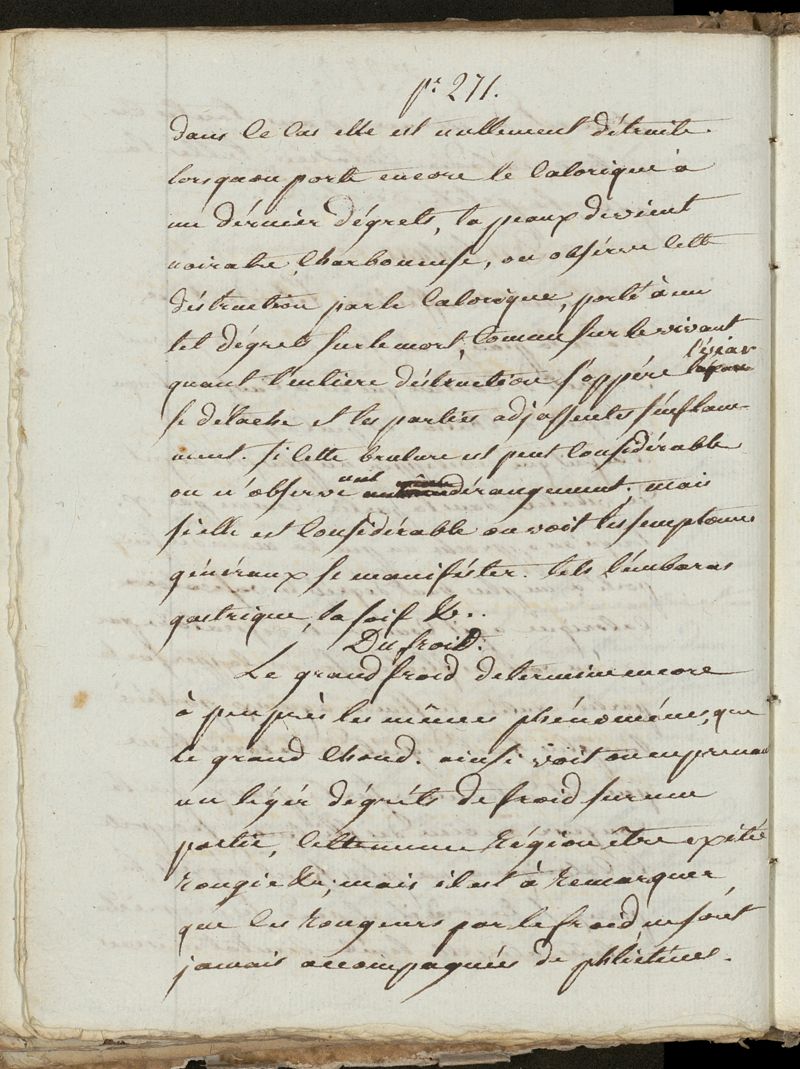 pe 271.
dans ce cas elle est nullement détruite.
lorsquon porte encore le calorique a
un dérnier dégrets, la peaux devient
noiratre, Charboneuse, on obsérve cette
déstruction par le calorique, porté à un
tel dégrets sur le mort, comme sur le vivant
quant l'entiere déstruction s'oppére l'éscar
se détache et les parties adjassentes s'enflam-
ment. si cette brulure est peut considérable
on n'observe nul dérangement; mais
si elle est considérable on voit les semptomes
généraux se manifester. tels l'embaras
gastrique, la soif &c..
Du froid.
Le grand froid determine encore
à peu près les mêmes phénoménes, que
le grand Chaud. ainsi voit on en prenant
un légér dégrets de froid sur une
partie, cette meme Région être exitée
rougie &c; mais il est à remarquer
que les Rougeurs par le froid ne sont
jamais accompagnées de phlictènes.